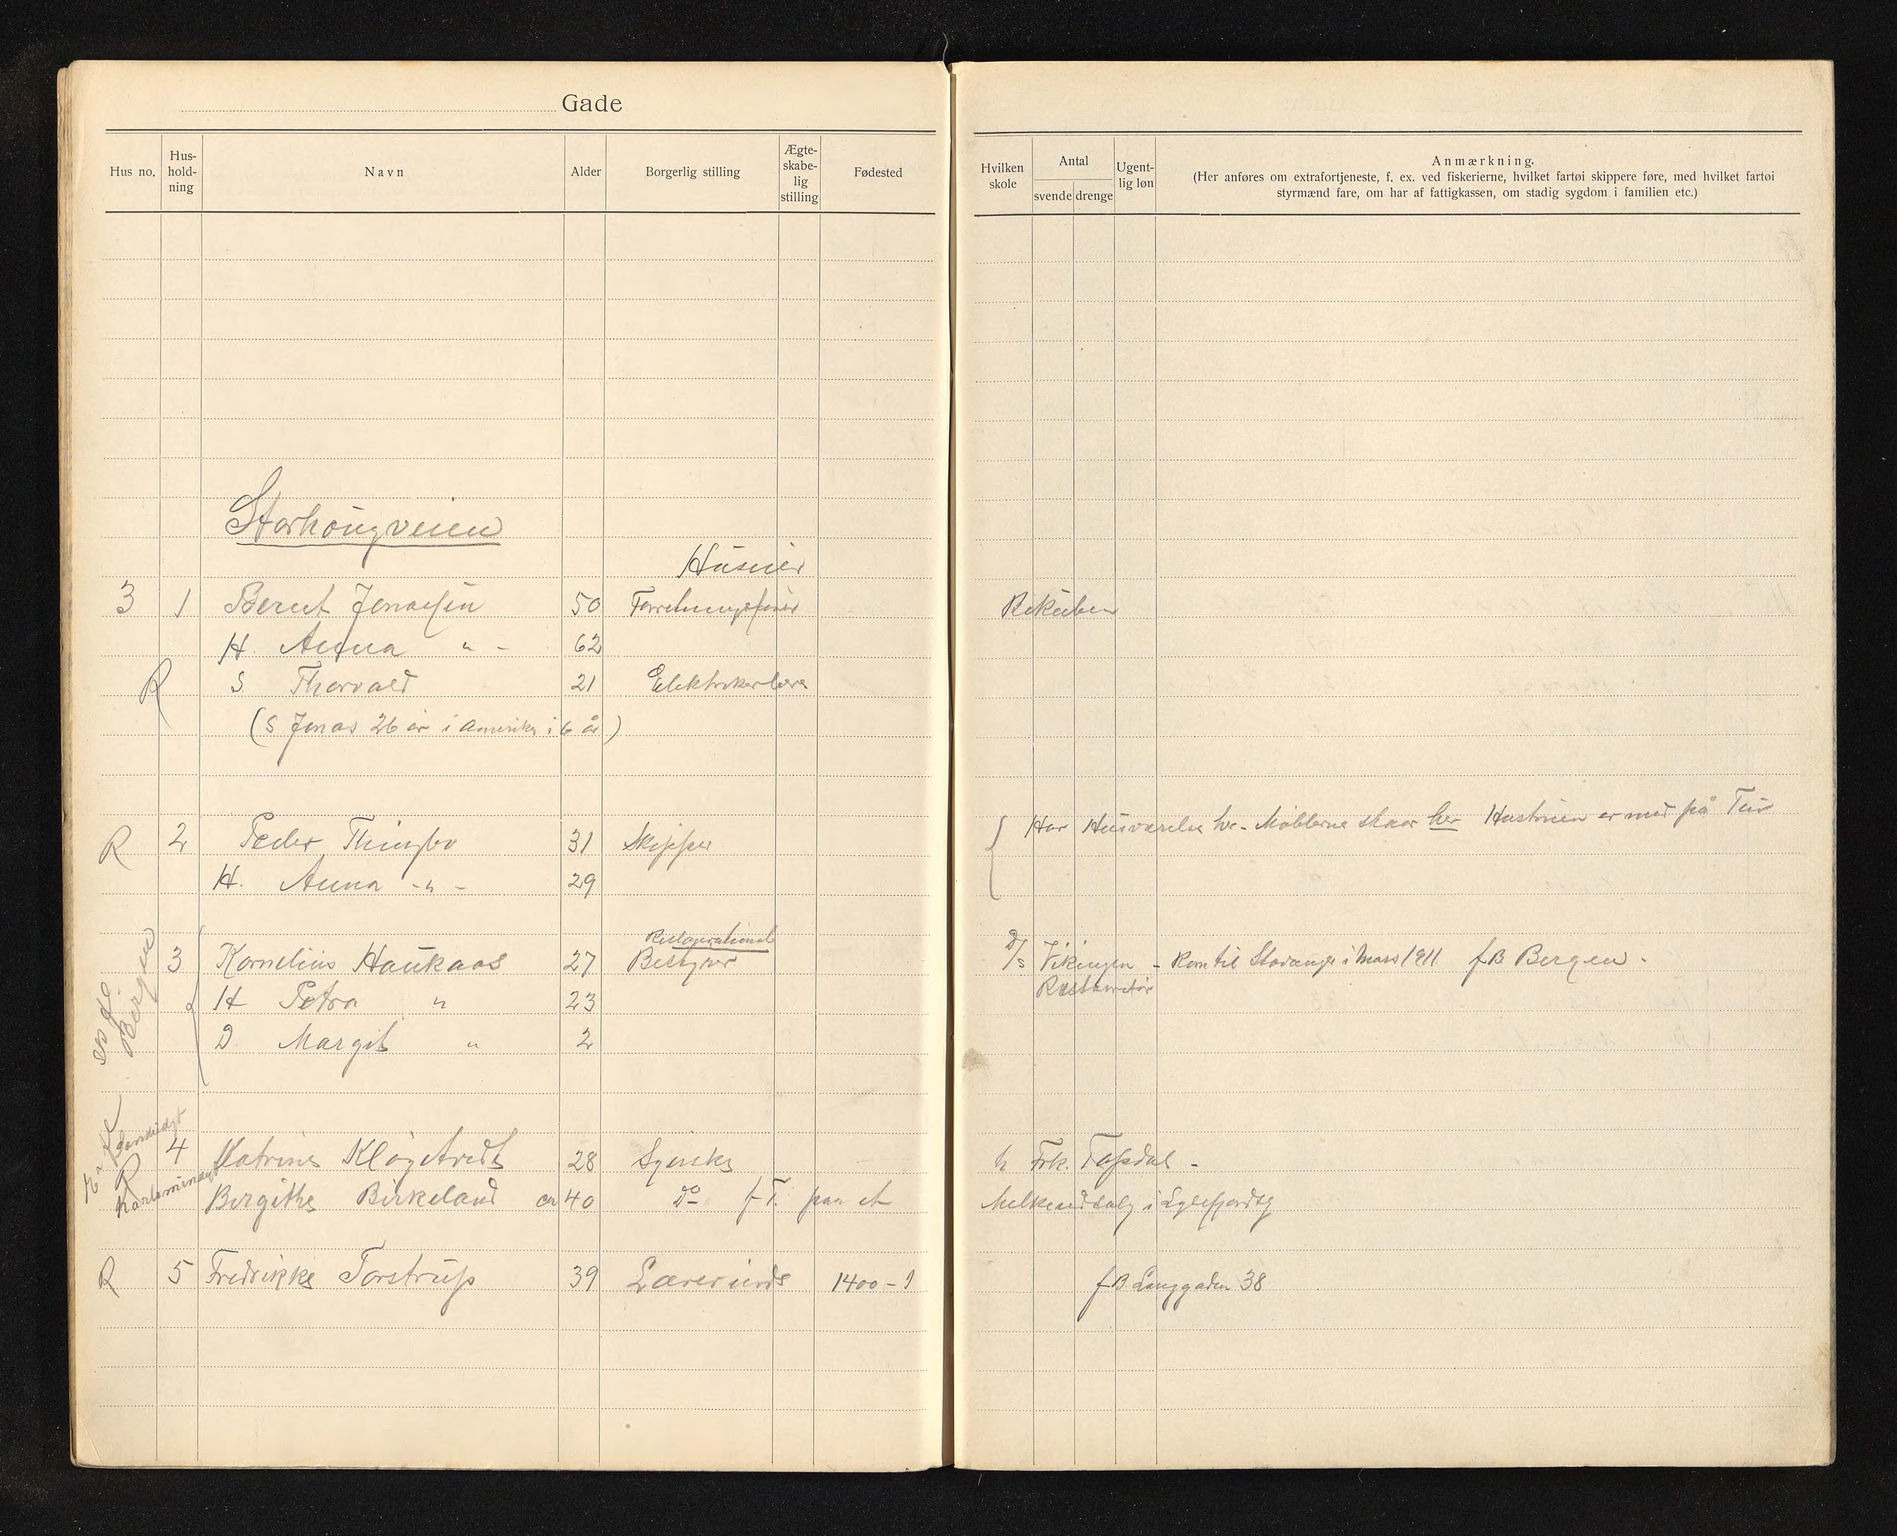 Gade
Hus no. Hus-hold-ning Navn Alder Borgerlig stilling Ægte-skabe-lig stilling Fødested
Hvilken skole Antal svende drenge Ugent-lig løn Anmærkning.
(Her anføres om extrafortjeneste, f. ex. ved fiskerierne, hvilket fartøi skippere føre, med hvilket fartøi
styrmænd fare, om har af fattigkassen, om stadig sygdom i familien etc.)
Storhougveien
Huseier
3 1 Bernt Jonassen 50 Forretningsfører Bikuben
H. Anna " - 62
R S Thorvald 21 Elektrikerlære
(S Jonas 26 år i Amerika i 6 år)
R 2 Peder Thingbø 31 Skipper Har Husværelse her - Møblerne staar her Hustruen er med på Tur
H. Anna -"- 29
Restaurations
3 Kornelius Haukaas 27 Bestyrer D/S Vikingen - Kom til Stavanger i Mars 1911 f B Bergen -
Restauratør
H Petra " 23
D. Margit " 2
Bergen
4 Katrine Kløgetvedt 28 Syerske h Frk. Tapsdal -
R Bergithe Birkeland ca 40 Do f T. paa et Melkeudsalg i
R 5 Fredrikke Torstrup 39 Lærerinde 1400-1 f B Langgaden 38